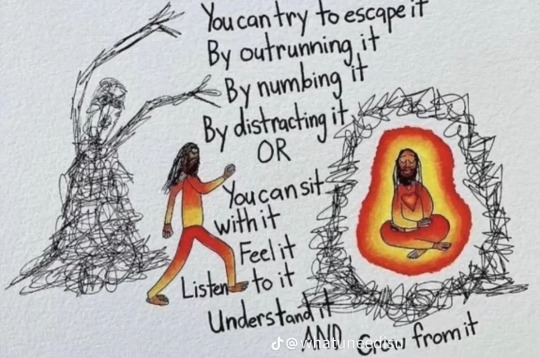 You can try to escape it
By outrunning it
By numbing it
By distracting it
OR
You can sit
with it
Feel it
Listen to it
Understand it
AND Grow from it